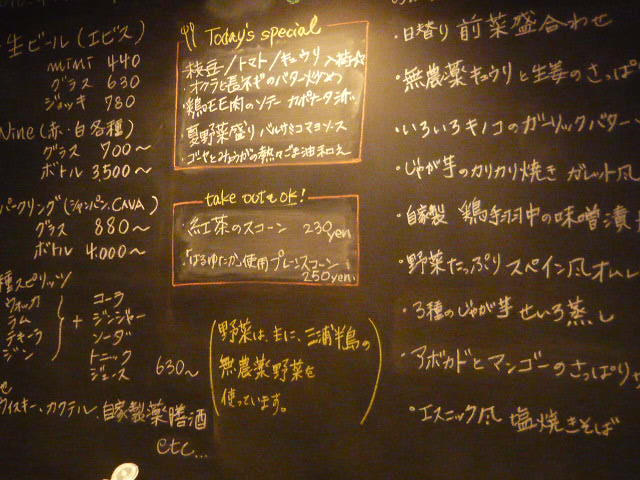 ・生ビール(エビス)
mini 440
グラス 630
ジョッキ 780
Wine(赤・白各種)
グラス 700〜
ボトル 3500〜
パークリング(シャンパン、CAVA)
グラス 880〜
ボトル 4.000〜
種スピリッツ
ウォッカ
ラム
テキーラ
ジン
+
コーラ
ジンジャー
ソーダ
トニック
ジュース 630〜
ウィスキー、カクテル、自家製薬膳酒
etc...
Today's special
枝豆/トマト/キュウリ 入荷☆
・オクラと長ネギのバター炒め
・鶏モモ肉のソテー カポナータ添え
・夏野菜盛り バルサミコマヨソース
・ゴーヤとみょうがの熱々ごま油和え
take outも OK!
・紅茶のスコーン 230yen
・「はるゆたか」使用プレーンスコーン
250yen.
野菜は、主に、三浦半島の
無農薬野菜を
使っています。
・日替り 前菜盛合わせ
・無農薬キュウリと生姜のさっぱ
・いろいろキノコのガーリックバター
・じゃが芋のカリカリ焼き ガレット風
・自家製 鶏手羽中の味噌漬
・野菜たっぷり スペイン風オムレ
・3種のじゃが芋 せいろ蒸し
・アボカドとマンゴーのさっぱり
・エスニック風 塩焼きそば